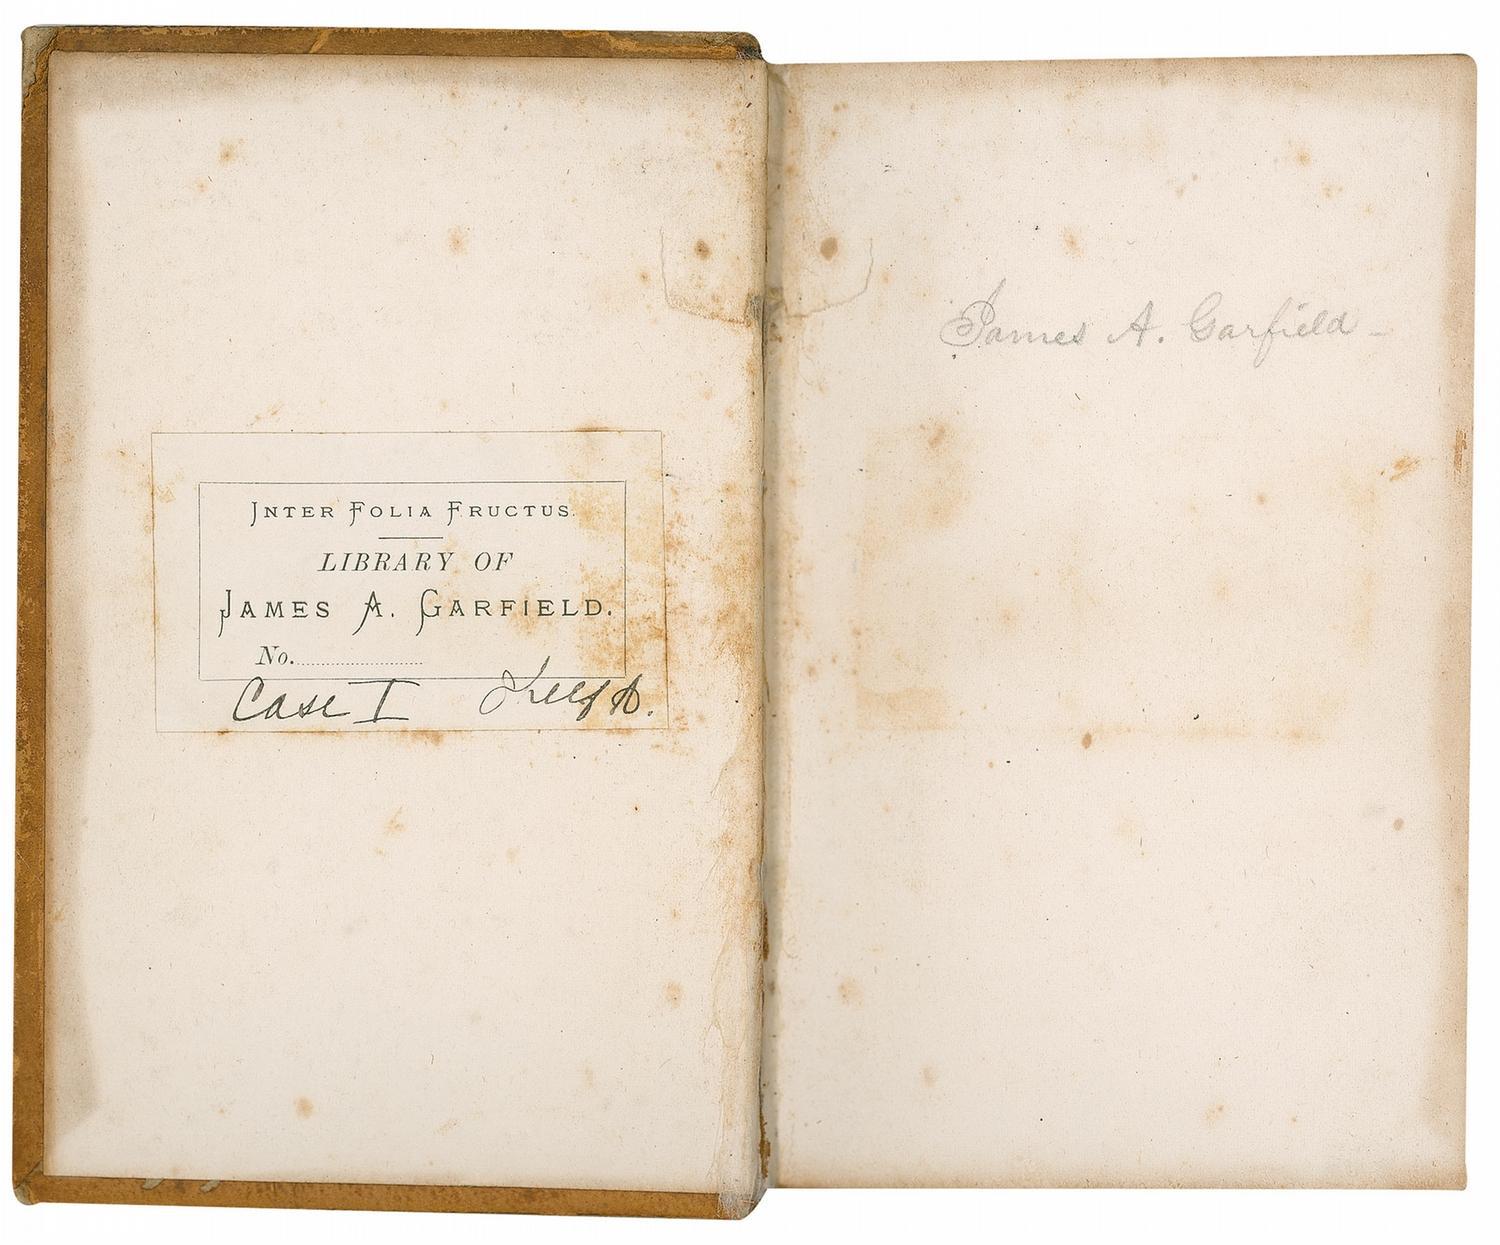 INTER FOLIA FRUCTUS.
LIBRARY OF
JAMES A. GARFIELD.
No.
Case I
James A. Garfield -